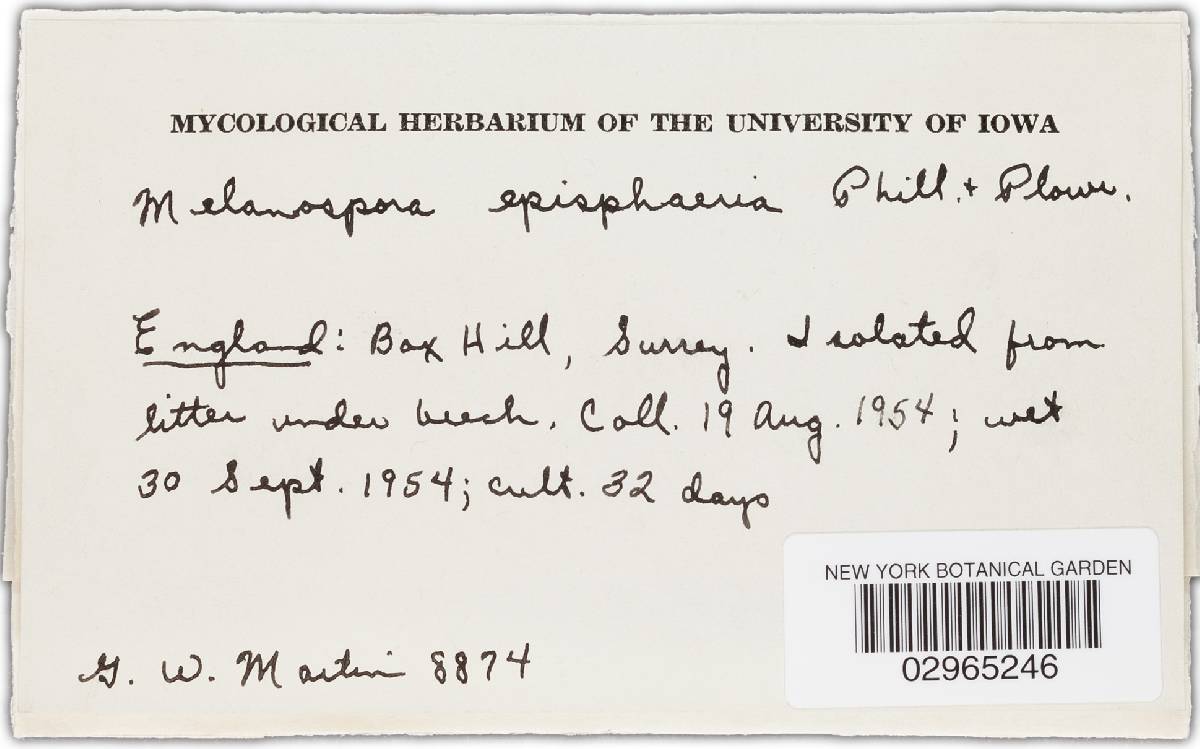 MYCOLOGICAL HERBARIUM OF THE UNIVERSITY OF IOWA
Melanospora episphaeria Phill. & Plowr.
England: Box Hill, Surrey. Isolated from
litter under beech. Coll. 19 Aug. 1954; wet
30 Sept. 1954; cult. 32 days
NEW YORK BOTANICAL GARDEN
02965246
G. W. Martin 8874